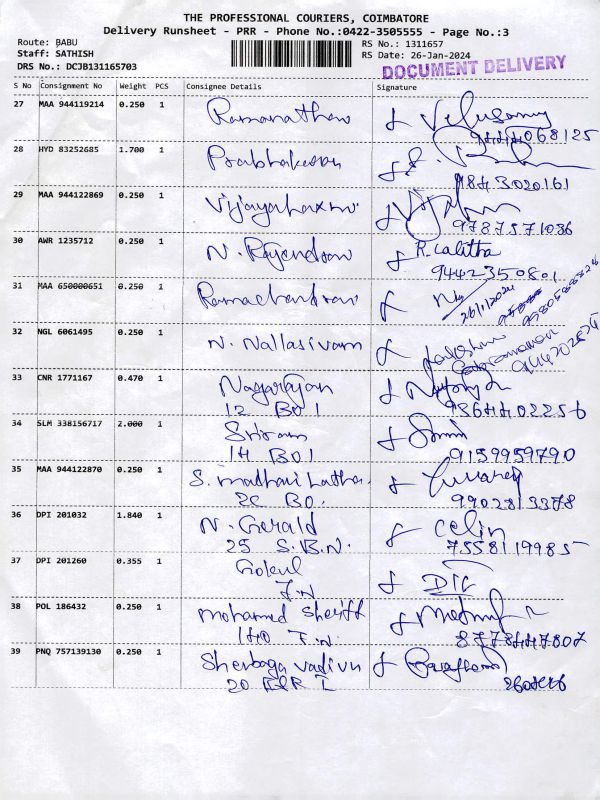 THE PROFESSIONAL COURIERS, COIMBATORE
Delivery Runsheet - PRR - Phone No.:0422-3505555 - Page No.:3
Route: BABU
Staff: SATHISH
DRS No.: DCJB131165703
RS No.: 1311657
RS Date: 26-Jan-2024
DOCUMENT DELIVERY
S No Consignment No Weight PCS Consignee Details Signature
27 MAA 944119214 0.250 1 Ramanathan
28 HYD 83252685 1.700 1 Prabhakaran
9843020161
29 MAA 944122869 0.250 1
9787571036
30 AWR 1235712 0.250 1 N. Rajendran R. Lalitha
9442350801
31 MAA 650000651 0.250 1 Ramachandran
26/1/2024
32 NGL 6061495 0.250 1 N. Nallasivam
33 CNR 1771167 0.470 1 Nagarajan
12 BOI 9364402256
34 SLM 338156717 2.000 1 Sriram
14 BOI 9159959790
35 MAA 944122870 0.250 1 S. madhari Latha
2C BO.
36 DPI 201032 1.840 1 N. Gerald Celin
25 S.B.N. 7558119985
37 DPI 201260 0.355 1 Gokul
J.N
38 POL 186432 0.250 1 mohamed Sheriff
140 J.N.
39 PNQ 757139130 0.250 1 Shenbaga vadivu
20